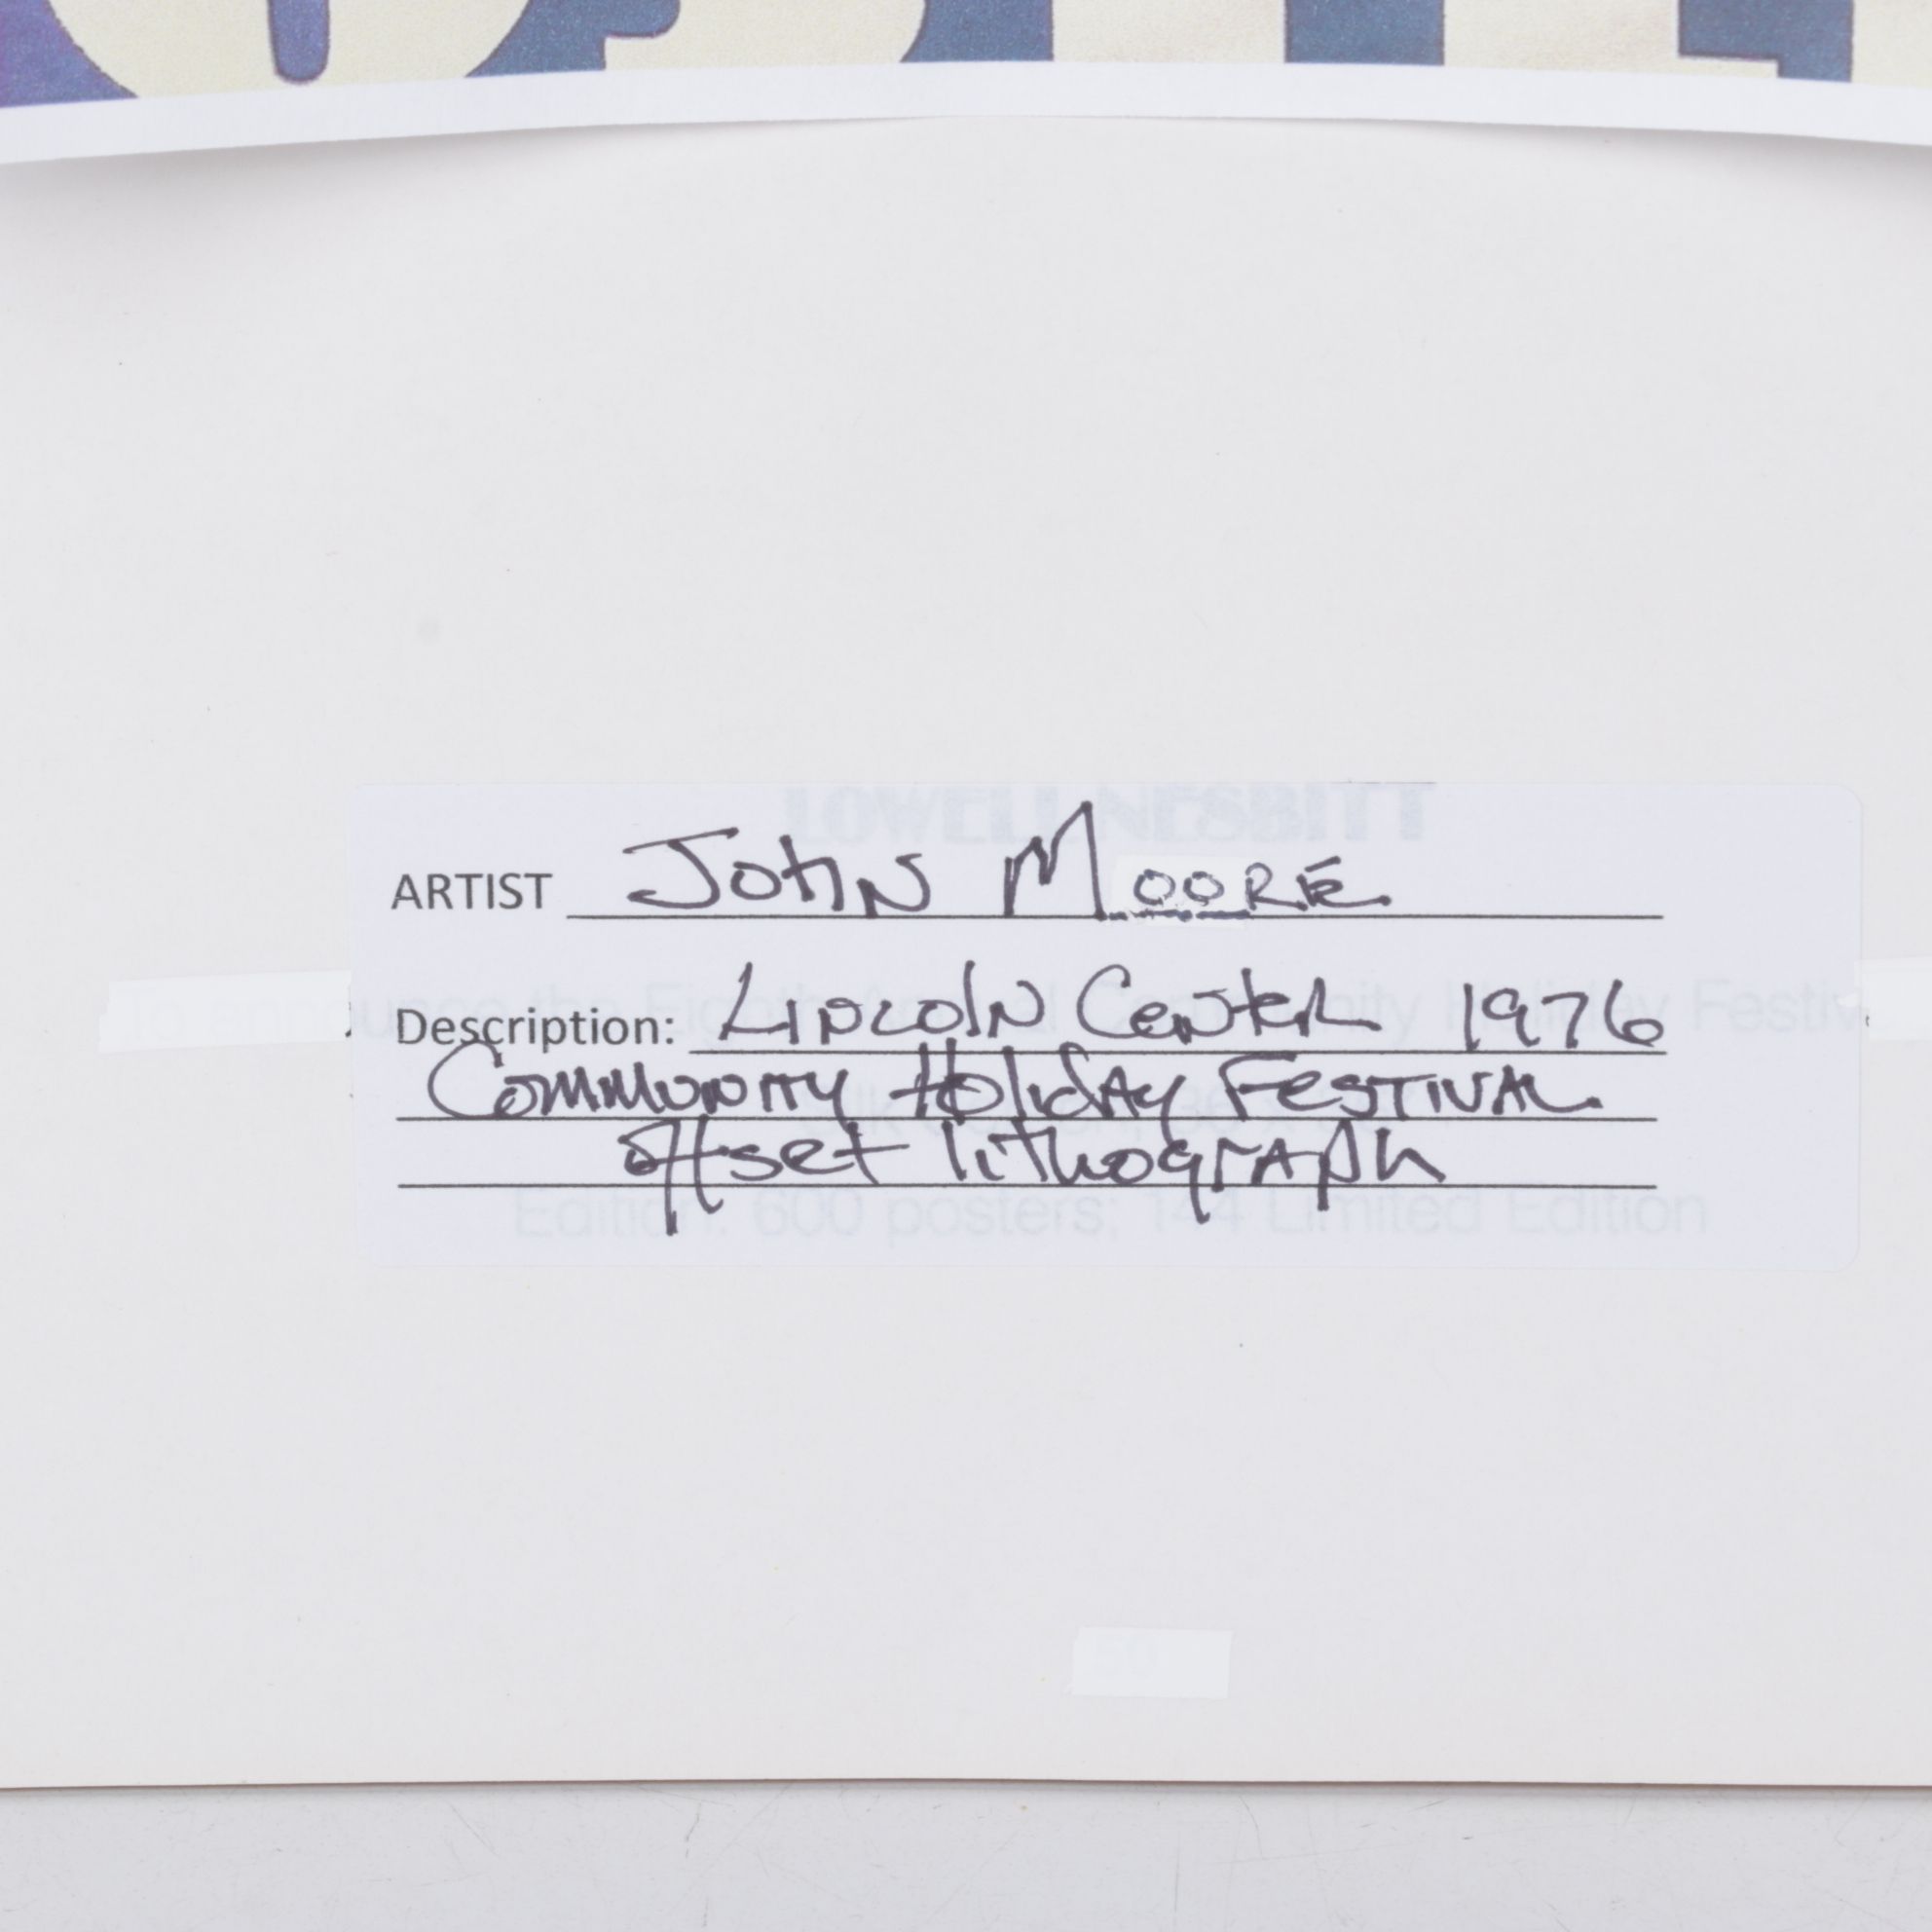 LOWELL NESBITT
ARTIST John Moore
To announce the Eighth Annual Community Holiday Festiv
Description: Lincoln Center 1976
Community Holiday Festival
Silk
offset lithograph
Edition: 600 posters; 144 Limited Edition